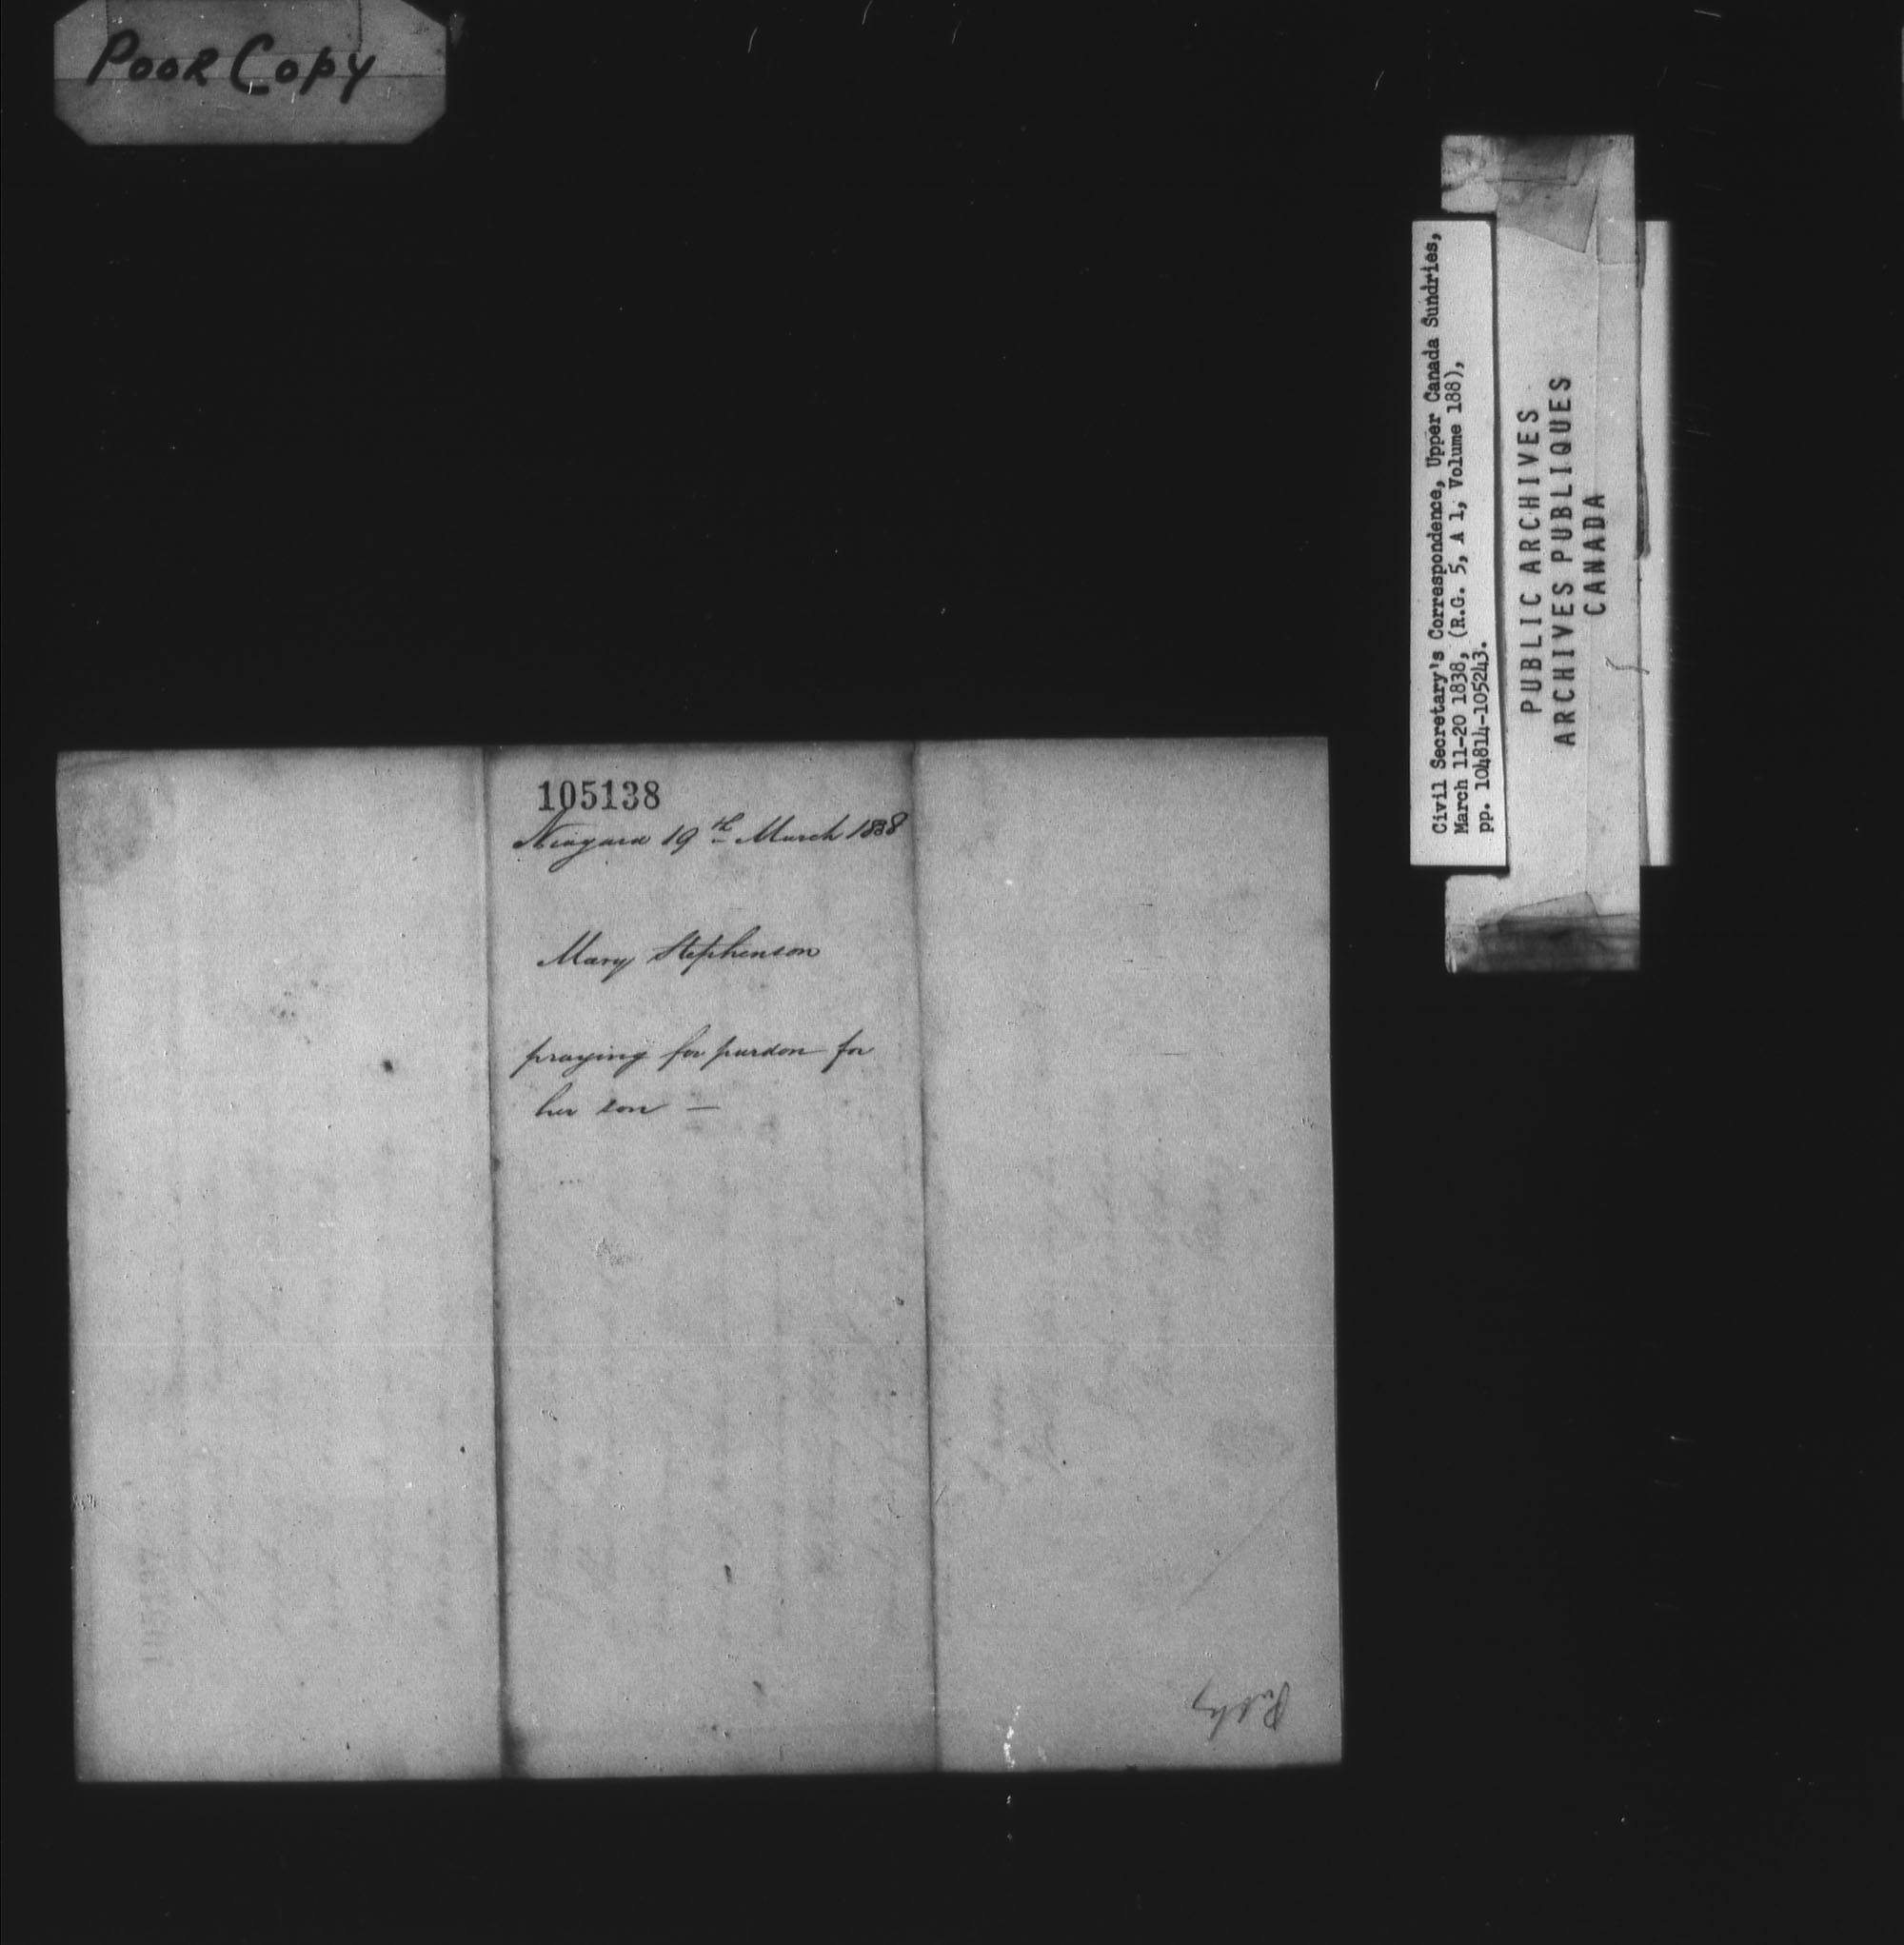 Poor Copy
105138
Niagara 19th March 1838
Mary Stephenson
praying for pardon for
her son —
Civil Secretary's Correspondence, Upper Canada Sundries,
March 11-20 1838, (R.G. 5, A 1, Volume 188),
pp. 104814-105243.
PUBLIC ARCHIVES
ARCHIVES PUBLIQUES
CANADA